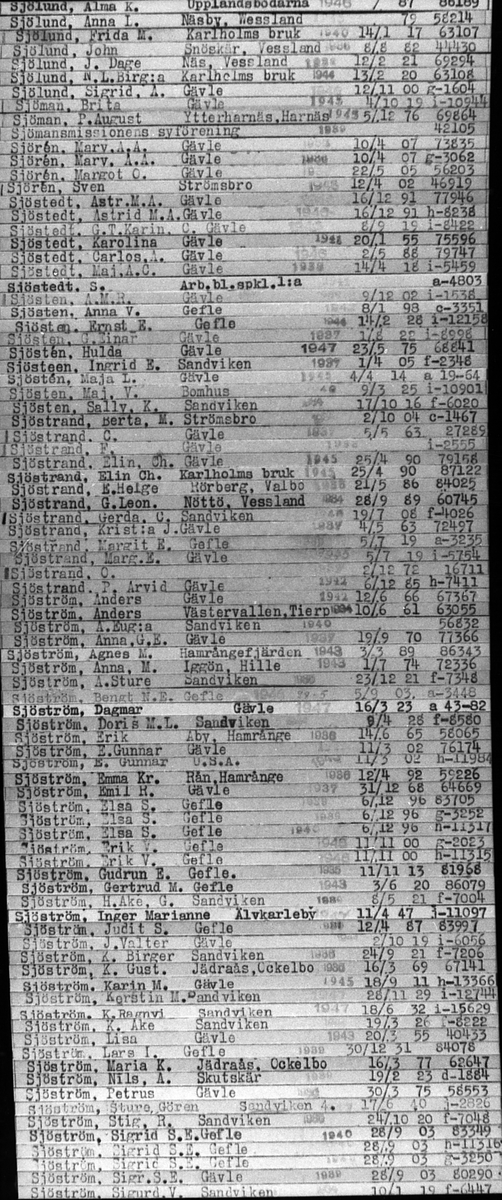 Sjölund, Alma K. Upplandsbodarna 1946 / 87 86189
Sjölund, Anna L. Näsby, Wessland 79 58214
Sjölund, Frida M. Karlholms bruk 1940 14/1 17 63107
Sjölund, John Snöskär, Vessland 8/8 82 44430
Sjölund, J. Dage Näs, Vessland 12/2 21 69294
Sjölund, N.L.Birg:a Karlholms bruk 1944 13/2 20 63108
Sjölund, Sigrid, A. Gävle 12/11 00 g-1604
Sjöman, Brita Gävle 1945 4/10 19 i-10944
Sjöman, P.August Ytterharnäs,Harnäs 1945 5/12 76 69864
Sjömansmissionens syförening 1939 42105
Sjörén, Mary.A.A. Gävle 10/4 07 73835
Sjörén, Mary. A.A. Gävle 10/4 07 g-3062
Sjörén, Margot O. Gävle 22/5 05 56203
Sjörén, Sven Strömsbro 12/4 02 46919
Sjöstedt, Astr.M.A. Gävle 16/12 91 77946
Sjöstedt, Astrid M.A.Gävle 16/12 91 h-8238
Sjöstedt, G.T.Karin, C. Gävle 8/9 19 i-8422
Sjöstedt, Karolina Gävle 20/1 55 75596
Sjöstedt, Carlos.A. Gävle 2/5 88 79747
Sjöstedt, Maj.A.C. Gävle 14/4 18 i-5459
Sjöstedt. S. Arb.bl.spkl.l:a a-4803
Sjösten, A.M.R. Gävle 9/12 02 i-1538
Sjösten, Anna V. Gefle 8/1 98 c-3351
Sjösten, Ernst E. Gefle 14/2 28 i-12158
Sjösten, G.Einar Gävle 1937 i-8998
Sjöstén, Hulda Gävle 1947 23/5 75 68841
Sjösteen, Ingrid E. Sandviken 1937 1/4 05 f-2348
Sjöstén, Maja L. Gävle 4/4 14 a 19-64
Sjösten, Maj, V. Bomhus 9/3 25 i-10901
Sjösten, Sally, K. Sandviken 17/10 16 f-6020
Sjöstrand, Berta, M. Strömsbro 2/10 04 c-1467
Sjöstrand, C. Gävle 5/5 63 27289
Sjöstrand, F. Gävle i-2555
Sjöstrand, Elin, Ch. Gävle 1945 25/4 90 79158
Sjöstrand, Elin Ch. Karlholms bruk 1945 25/4 90 87122
Sjöstrand, E.Helge Hörberg, Valbo 21/5 86 84025
Sjöstrand, G.Leon. Nöttö, Vessland 28/9 89 60745
Sjöstrand, Gerda. C. Sandviken 19/7 08 f-4026
Sjöstrand, Krist:a J.Gävle 1937 4/5 63 72497
Sjöstrand, Margit E. Gefle 5/7 19 a-3235
Sjöstrand, Marg.E. Gävle 5/7 19 i-5754
Sjöstrand, O. 2/12 72 16711
Sjöstrand, P. Arvid Gävle 6/12 85 h-7411
Sjöström, Anders Gävle 12/6 66 67367
Sjöström, Anders Västervallen,Tierp 10/6 61 63055
Sjöström, A.Eug:a Sandviken 1940 56832
Sjöström, Anna,G.E. Gävle 1937 19/9 70 77366
Sjöström, Agnes M. Hamrångefjärden 1943 3/3 89 86343
Sjöström, Anna, M. Iggön, Hille 1943 1/7 74 72336
Sjöström, A.Sture Sandviken 23/12 21 f-7348
Sjöström, Bengt N.E. Gefle 5/9 03. a-3448
Sjöström, Dagmar Gävle 1947 16/3 23 a 43-82
Sjöström, Doris M.L. Sandviken 9/4 28 f-8580
Sjöström, Erik Åby, Hamrånge 1938 14/6 65 58065
Sjöström, E.Gunnar Gävle 11/3 02 76174
Sjöström, E. Gunnar U.S.A. 11/3 02 h-11984
Sjöström, Emma Kr. Rån,Hamrånge 1938 12/4 92 59226
Sjöström, Emil H. Gävle 31/12 68 64669
Sjöström, Elsa S. Gefle 6/12 96 83705
Sjöström, Elsa S. Gefle 6/12 96 g-3252
Sjöström, Elsa S. Gefle 6/12 96 h-11317
Sjöström, Erik V. Gefle 11/11 00 g-2023
Sjöström, Erik V. Gefle 11/11 00 h-11315
Sjöström, Gudrun E. Gefle. 11/11 13 81968
Sjöström, Gertrud M. Gefle 1943 3/6 20 86079
Sjöström, H.Åke, G. Sandviken 8/5 21 f-7004
Sjöström, Inger Marianne Älvkarleby 11/4 47 i-11097
Sjöström, Judit S. Gefle 12/4 87 83997
Sjöström, J.Valter Gävle 2/10 19 i-6056
Sjöström, K. Birger Sandviken 24/9 21 f-7206
Sjöström, K. Gust. Jädraås,Ockelbo 16/3 69 67141
Sjöström. Karin M. Gävle 1945 18/9 11 h-13366
Sjöström, Kerstin M.Sandviken 28/11 29 i-12744
Sjöström. K.Ragnvi Sandviken 1947 18/6 32 i-15629
Sjöström, K. Åke Sandviken 19/3 26 f-8222
Sjöström, Lisa Gävle 1943 20/3 55 40433
Sjöström, Lars I. Gefle 1939 30/12 31 84078
Sjöström, Maria K. Jädraås, Ockelbo 16/3 77 62647
Sjöström, Nils, A. Skutskär 19/2 23 d-1884
Sjöström, Petrus Gävle 30/3 75 58553
Sjöström, Sture,Gören Sandviken 4. 17/6 40 h-2826
Sjöström, Stig, R. Sandviken 24/10 20 f-7048
Sjöström, Sigrid S.E.Gefle 1940 28/9 03 83349
Sjöström, Sigrid S.E. Gefle 28/9 03 h-11316
Sjöström, Sigrid S.E. Gefle 28/9 03 g-3250
Sjöström, Sigr.S.E. Gävle 1939 28/9 03 80290
Sjöström, Sigurd.V. Sandviken 10/1 19 f-6447